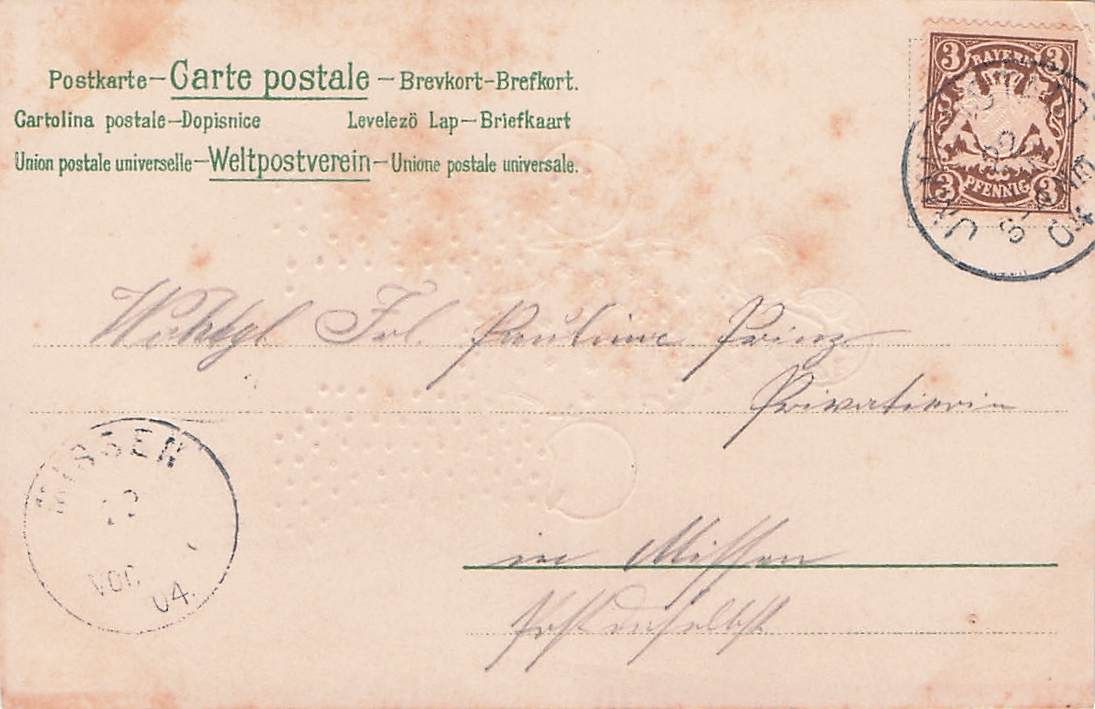 Postkarte – Carte postale – Brevkort-Brefkort.
Cartolina postale – Dopisnice Levelezö Lap – Briefkaart
Union postale universelle – Weltpostverein – Unione postale universale.
3 BAYERN 3
3 PFENNIG 3
04
Frl. Pauline Prinz
Privatierin
MISSEN
22
04.
in Missen
Post daselbst